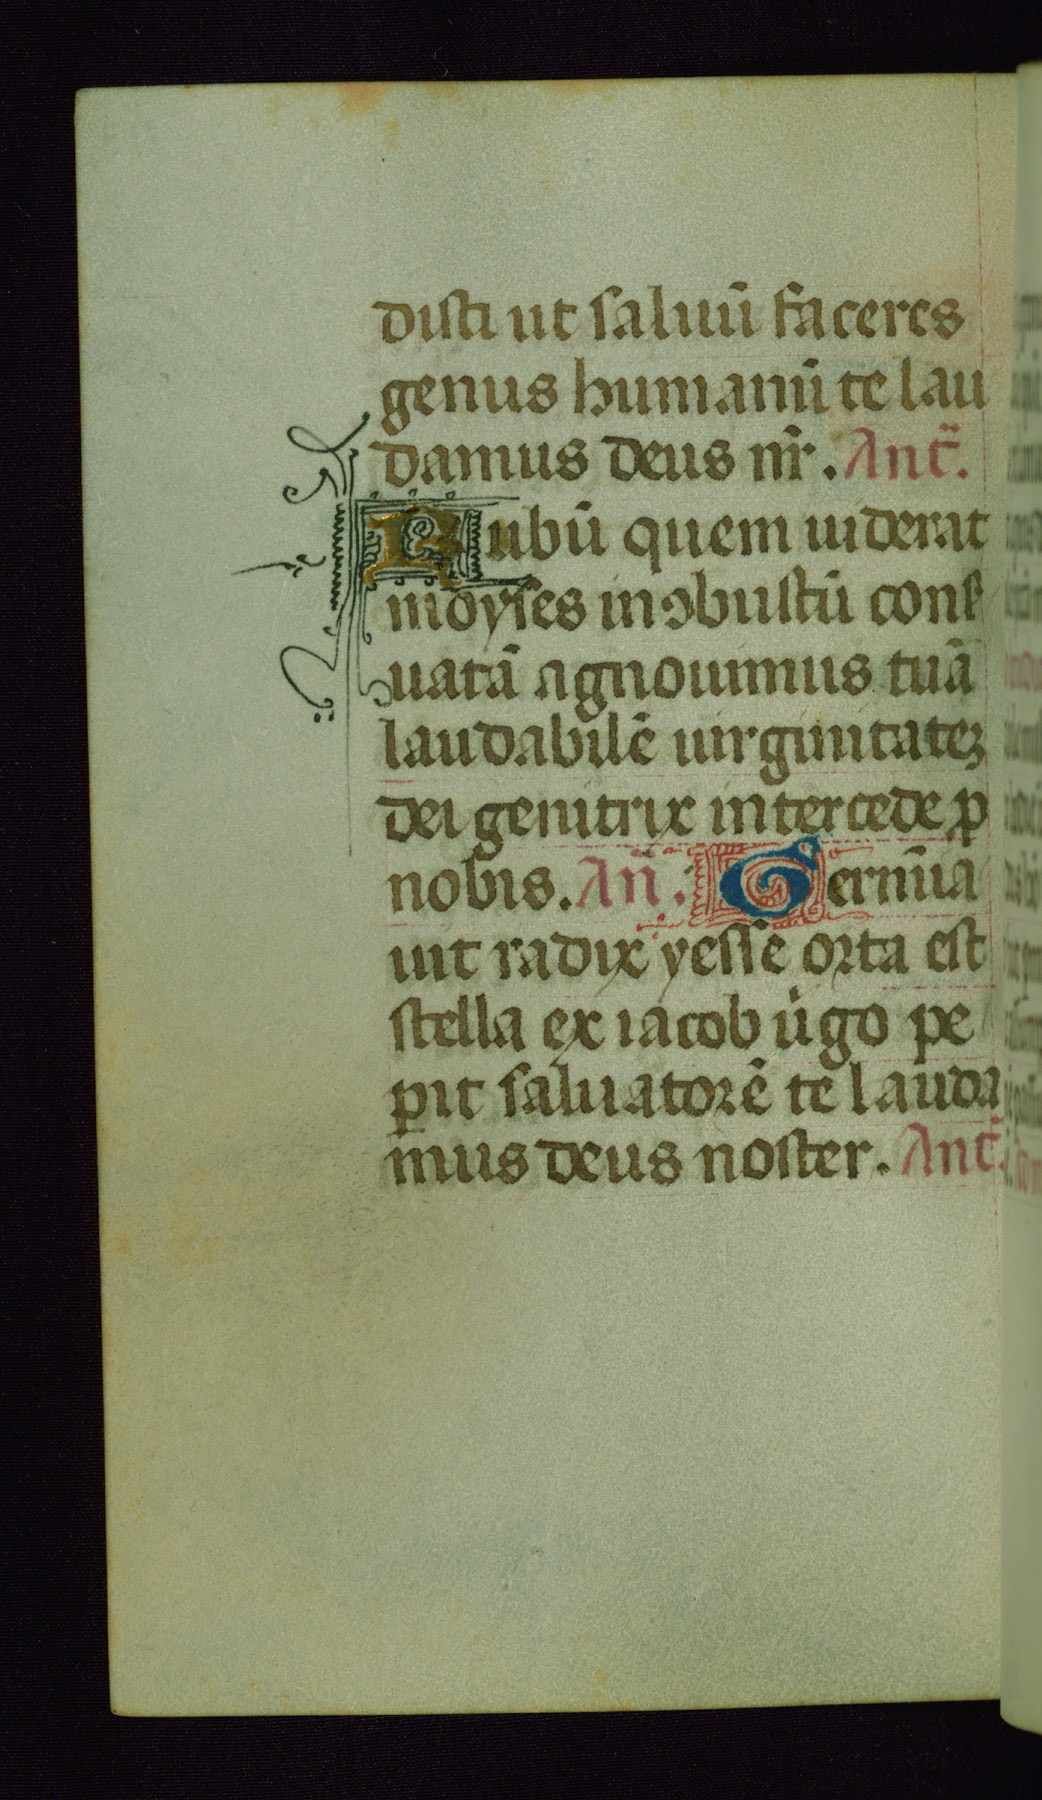 disti ut saluū faceres
genus humanū te lau
damus deus nr̄. Ant̄.
Rubū quem uiderat
moyses inↄbustū cons̄
uatā agnouimus tuā
laudabilē uirginitateꝫ
dei genitrix intercede ꝓ
nobis. An̄. Germīa
uit radix yesse orta est
stella ex iacob u̇go pe
ꝑit saluatorē te lauda
mus deus noster. Ant̄.